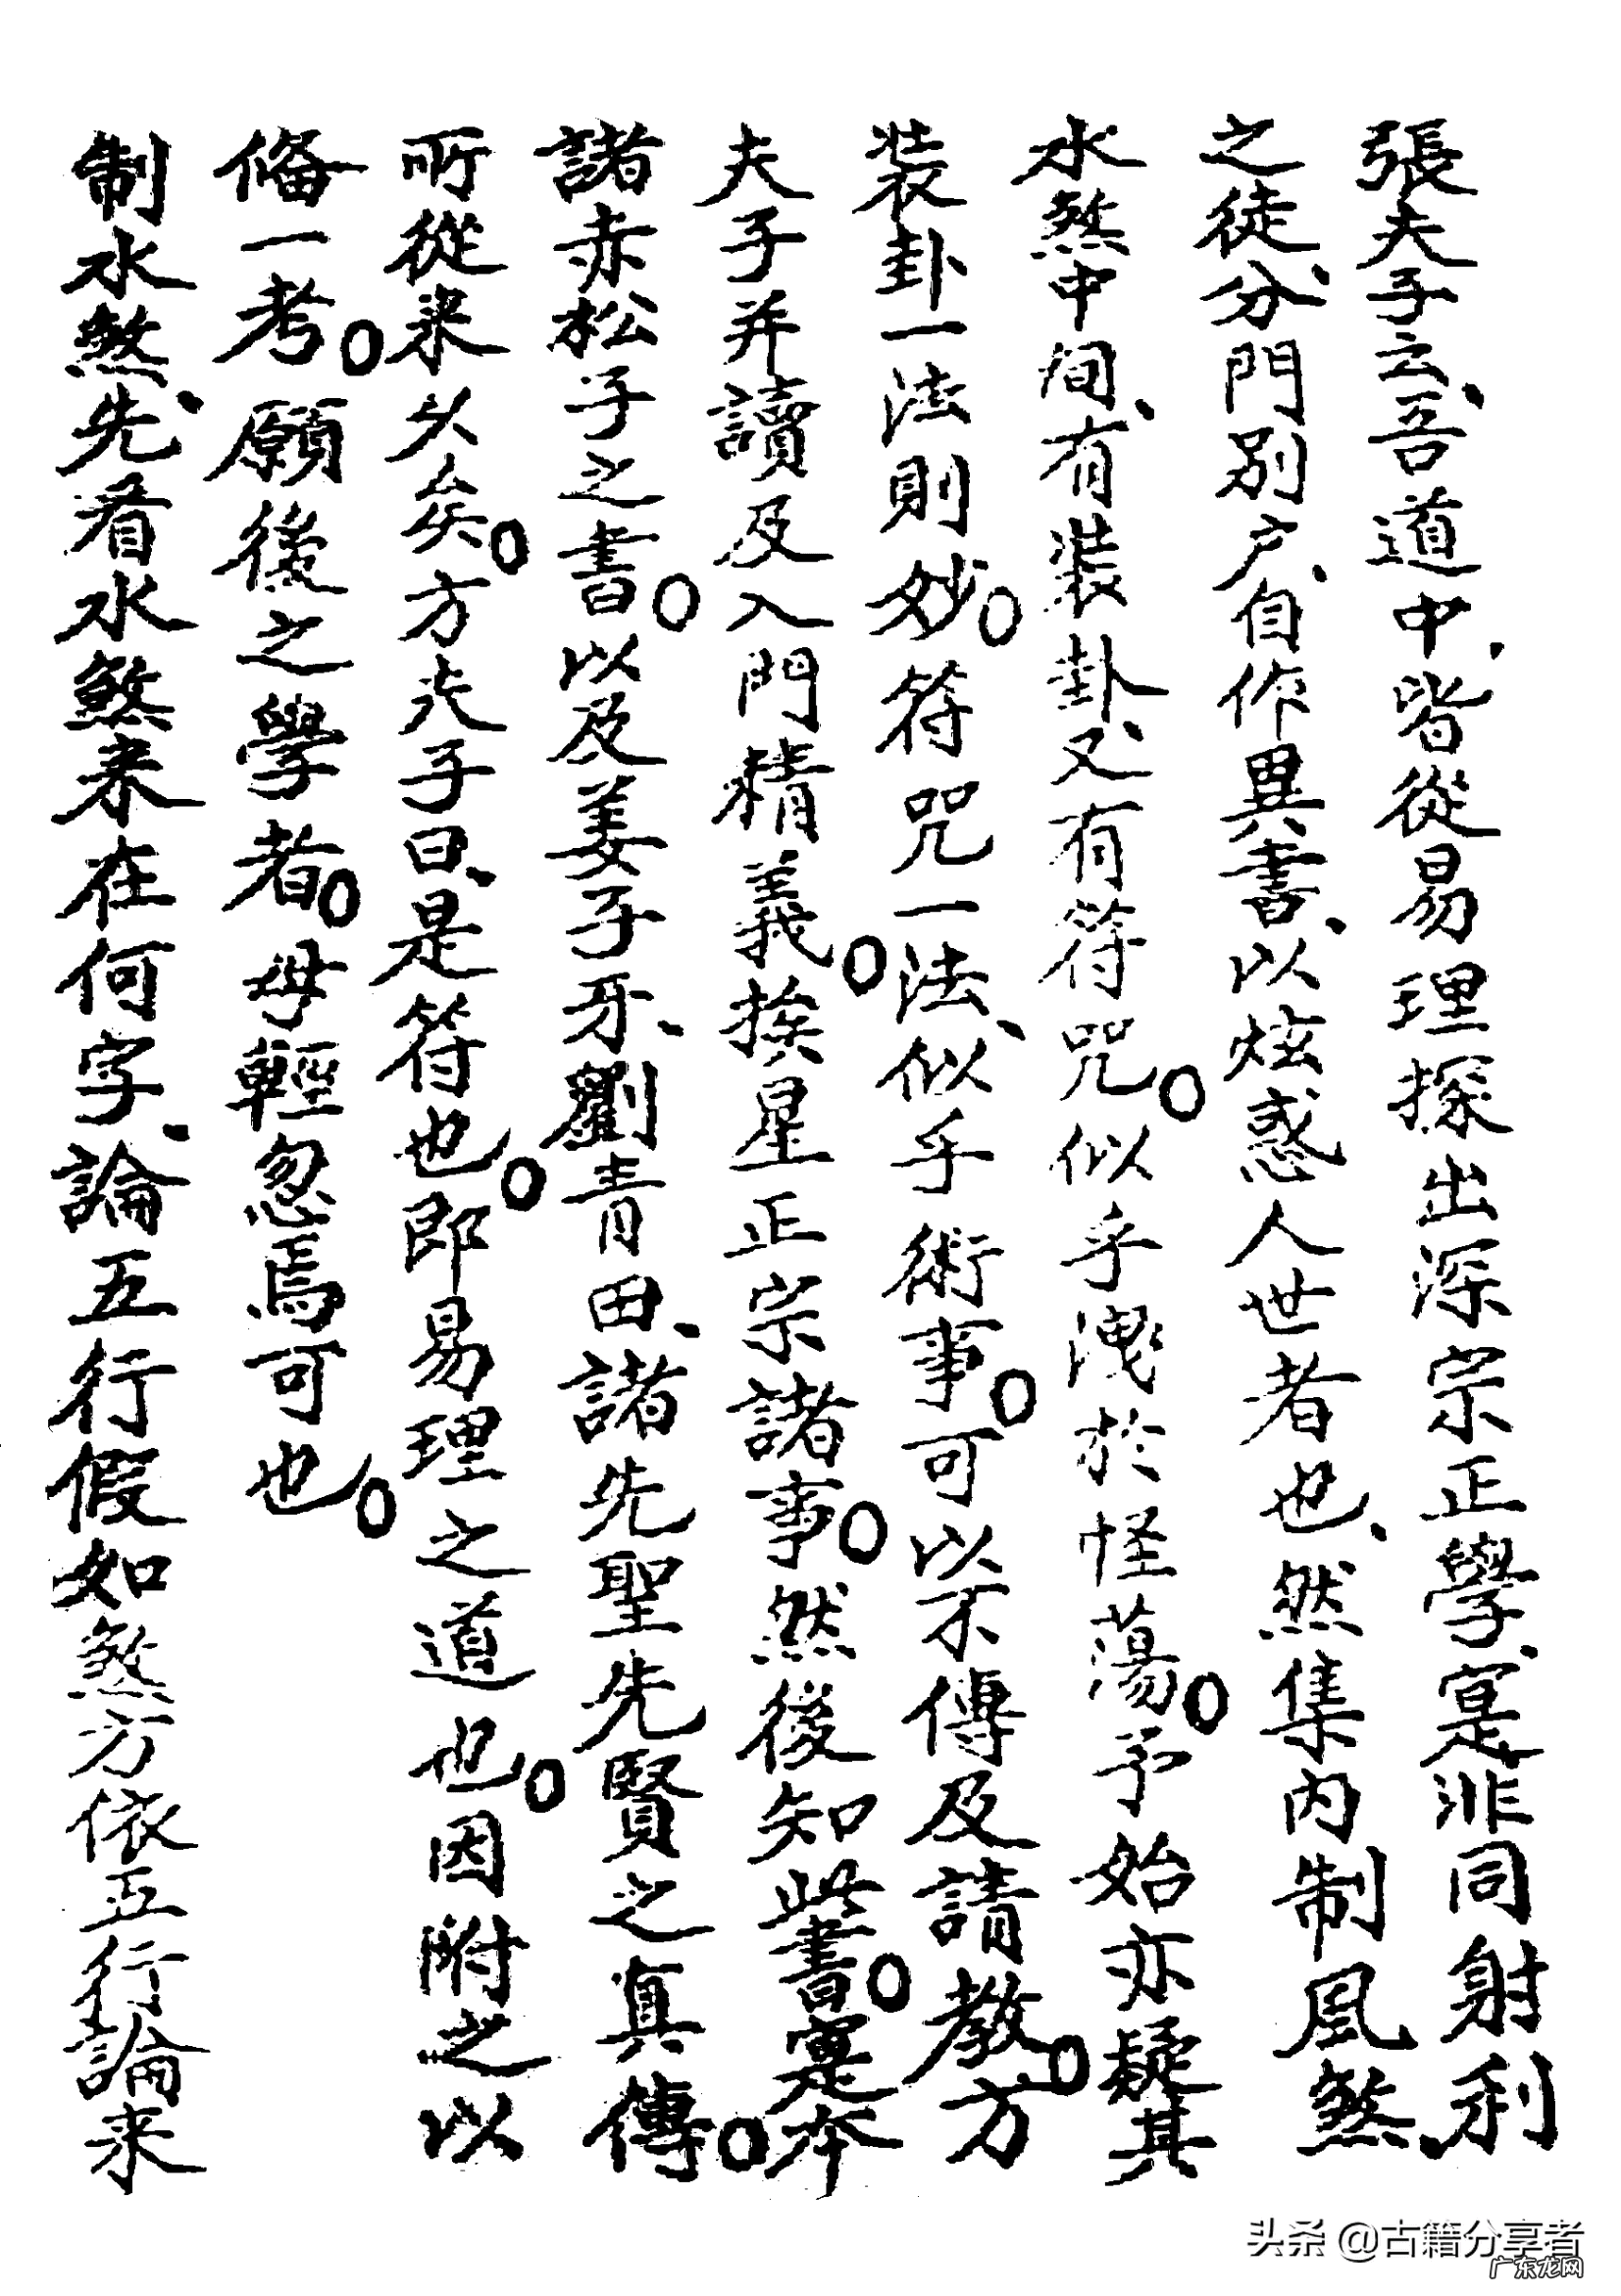 張夫子云、吾道中、皆從易理探出深宗正學、寔非同射利
之徒、分門別户、自作異書、以炫惑人世者也、然集内制風煞、
水煞中间、有装卦、又有符咒。似乎洩於怪蕩。予始亦疑其
装卦一法則妙。符咒一法、似乎術事。可以不傳及請教。方
夫子并讀及入門精義。挨星正宗諸事。然後知此書。寔本
諸赤松子之書。以及姜子牙、劉青田、諸先聖先賢之真傳。
所從来久矣。方夫子曰、是符也。即易理之道也。因附之以
俻一考。願後之學者。毋輕忽焉可也。
制水煞、先看水煞来在何字、論五行假如煞方依五行論来
头条 @古籍分享者
广东龙网